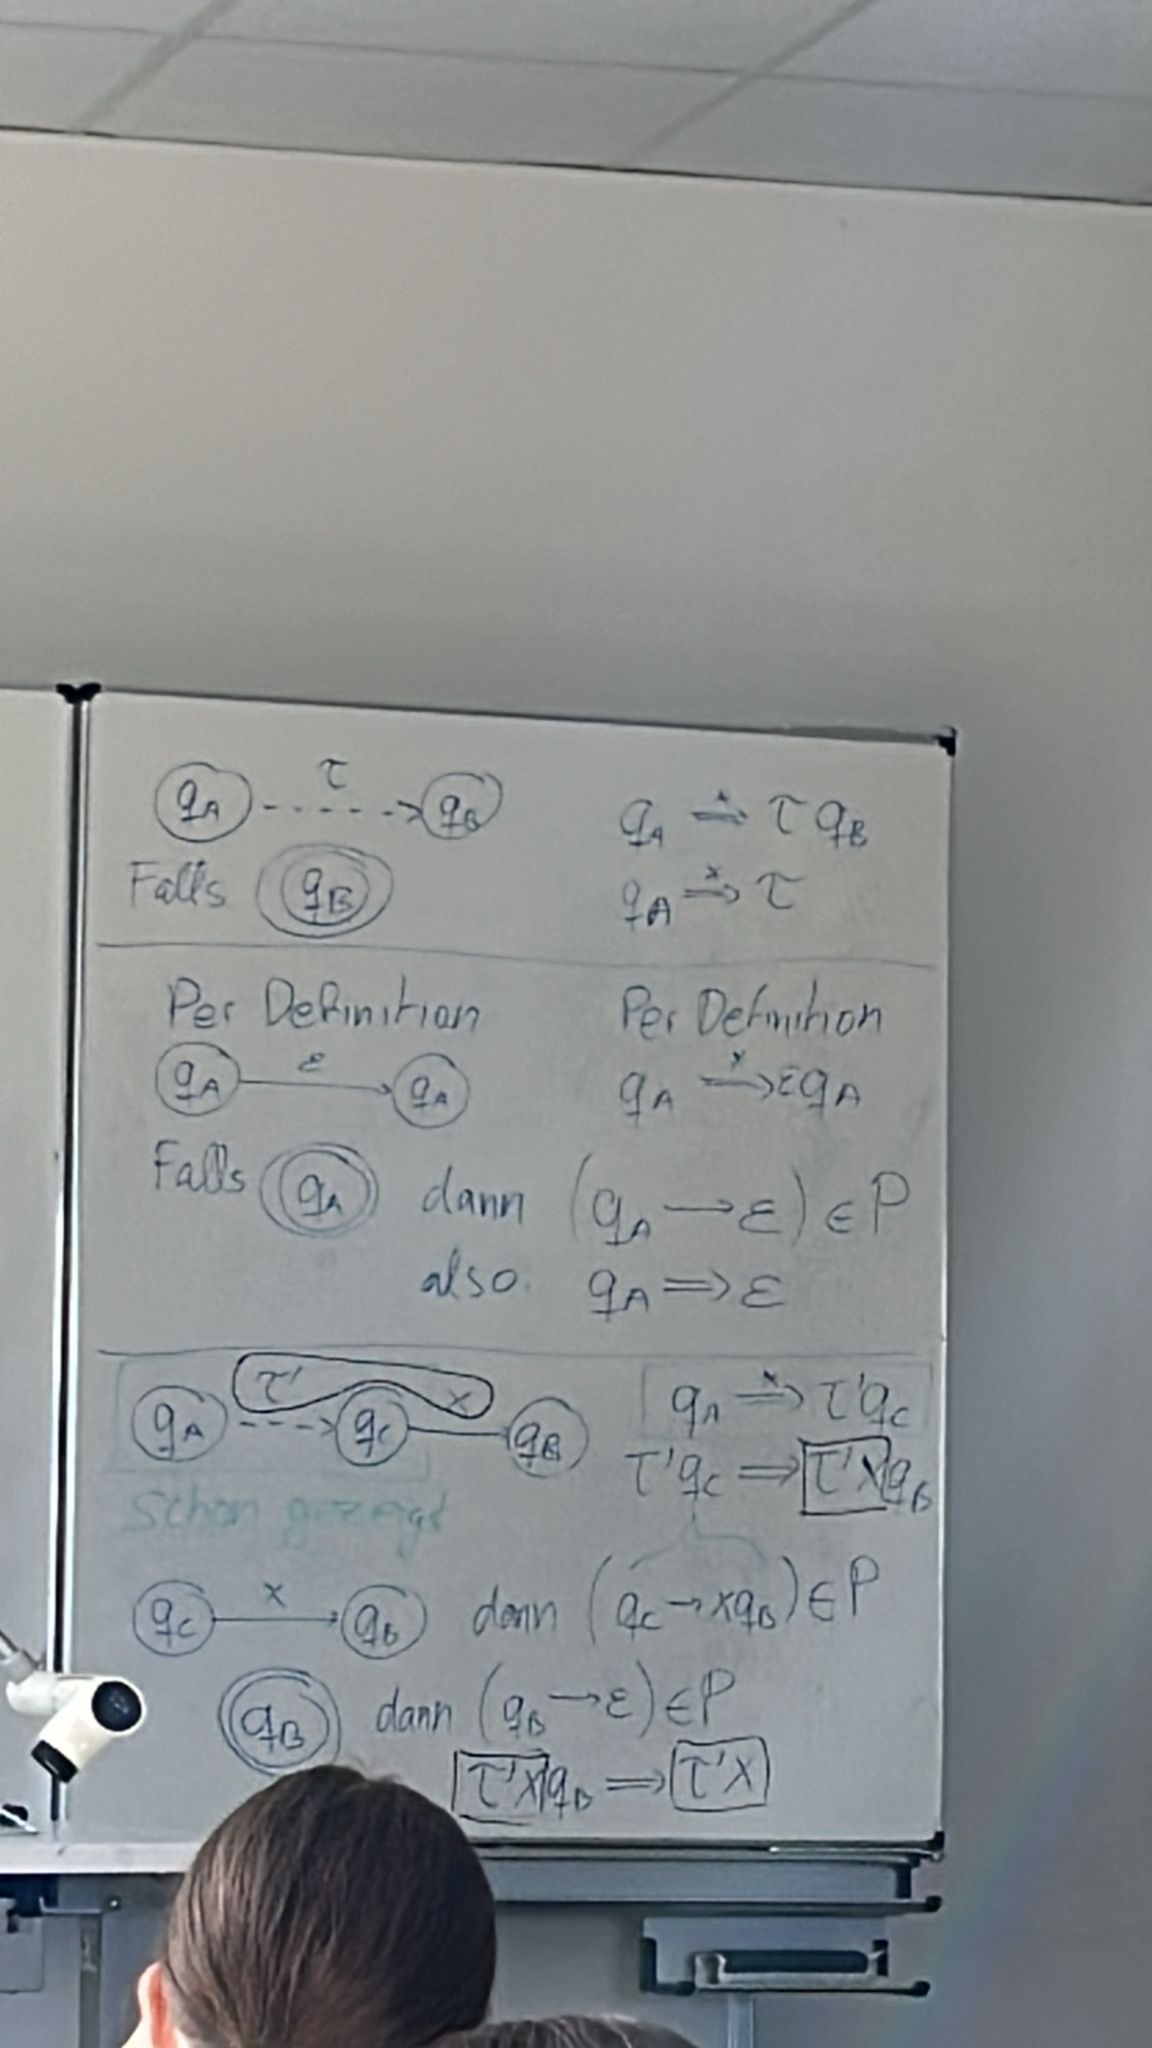 q_A τ q_B q_A ⇒* τ q_B
Falls q_B q_A ⇒* τ
Per Definition Per Definition
q_A ε q_A q_A ⇒* ε q_A
Falls q_A dann (q_A → ε) ∈ P
also q_A ⇒ ε
q_A τ' q_C x q_B q_A ⇒* τ' q_C
τ' q_C ⇒ τ' x q_B
Schon gezeigt
q_C x q_B dann (q_C → x q_B) ∈ P
q_B dann (q_B → ε) ∈ P
τ' x q_B ⇒ τ' x